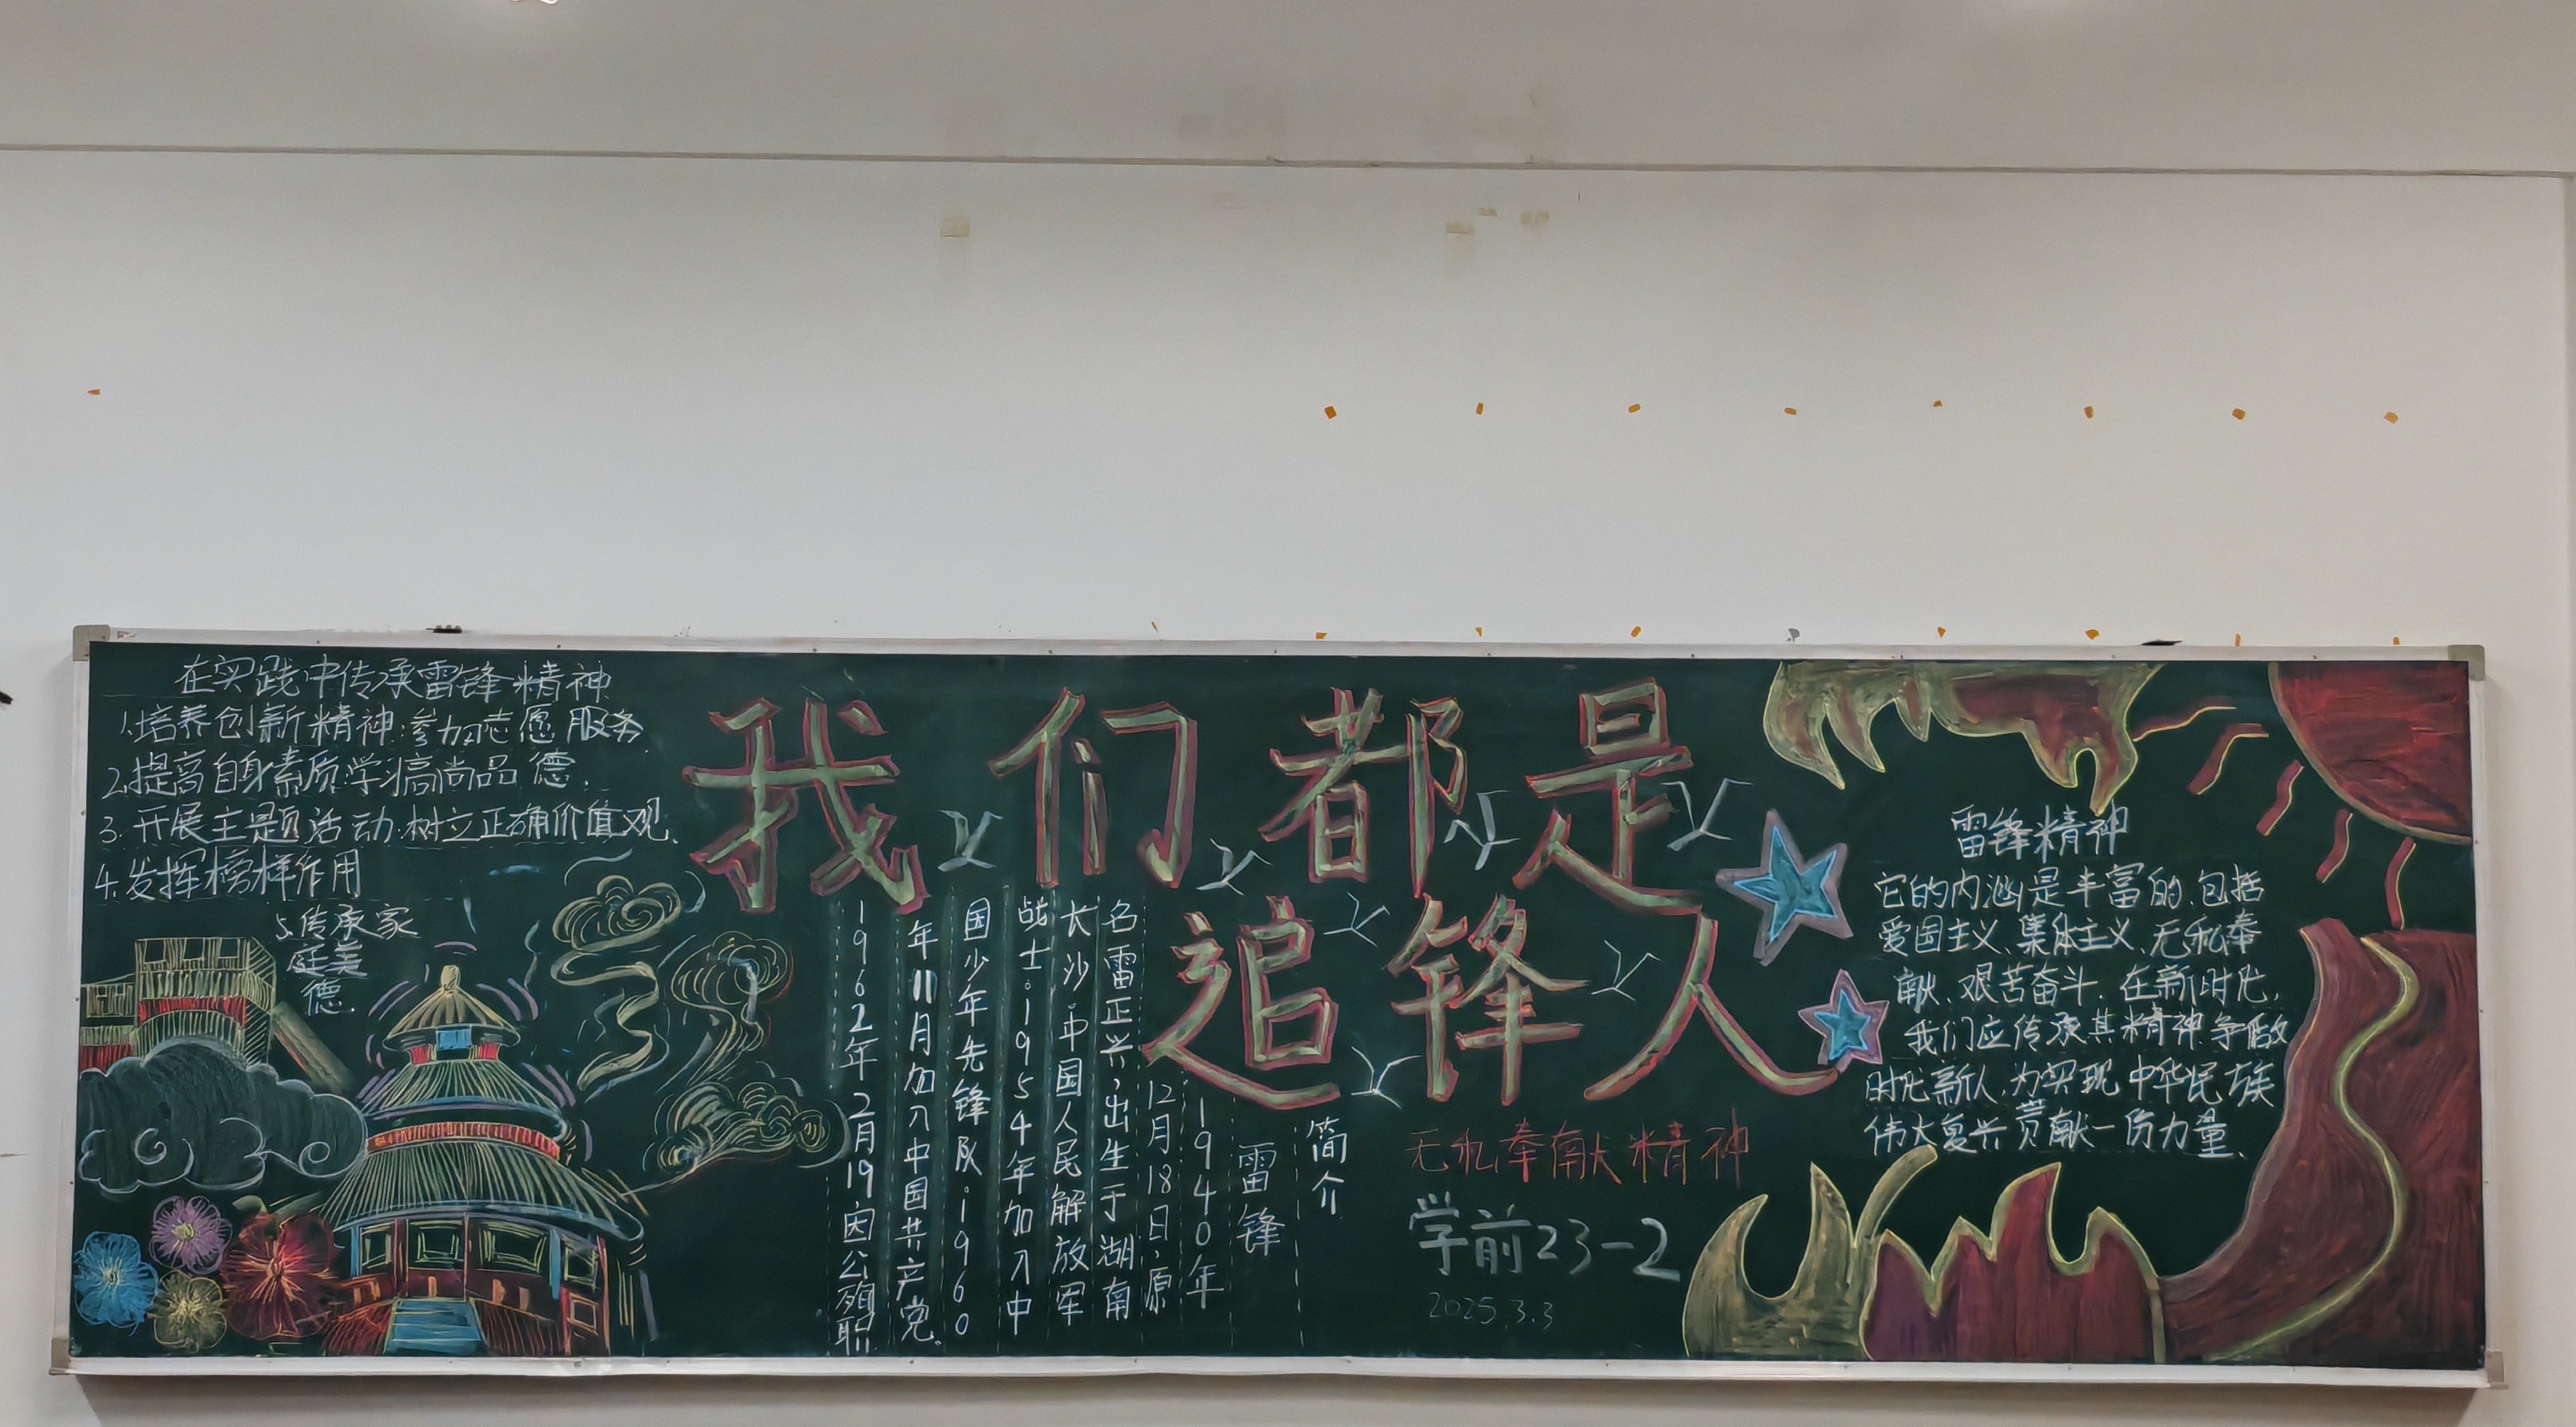 在实践中传承雷锋精神
1.培养创新精神.参加志愿服务.
2.提高自身素质学习高尚品德.
3.开展主题活动.树立正确价值观.
4.发挥榜样作用
5.传承家
庭美
德.
我们都是
追锋人
简介
雷锋
1940年
12月18日,原
名雷正兴,出生于湖南
长沙.中国人民解放军
战士.1954年加入中
国少年先锋队.1960
年11月加入中国共产党.
1962年2月19因公殉职
无私奉献精神
学前23-2
2025.3.3
雷锋精神
它的内涵是丰富的.包括
爱国主义、集体主义、无私奉
献、艰苦奋斗.在新时代,
我们应传承其精神.争做
时代新人.为实现中华民族
伟大复兴贡献一份力量.